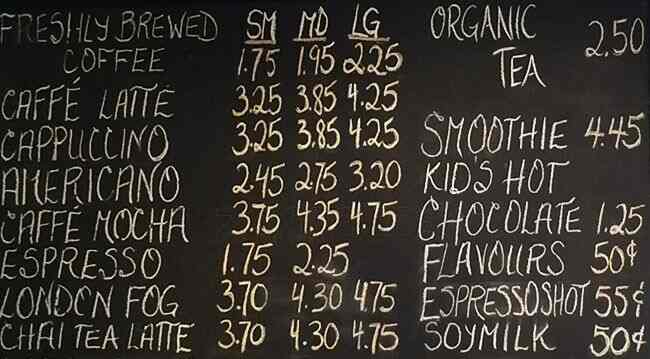 FRESHLY BREWED SM MD LG
COFFEE 1.75 1.95 2.25
CAFFÉ LATTE 3.25 3.85 4.25
CAPPUCCINO 3.25 3.85 4.25
AMERICANO 2.45 2.75 3.20
CAFFÉ MOCHA 3.75 4.35 4.75
ESPRESSO 1.75 2.25
LONDON FOG 3.70 4.30 4.75
CHAI TEA LATTE 3.70 4.30 4.75
ORGANIC
TEA 2.50
SMOOTHIE 4.45
KID'S HOT
CHOCOLATE 1.25
FLAVOURS 50¢
ESPRESSO SHOT 55¢
SOYMILK 50¢